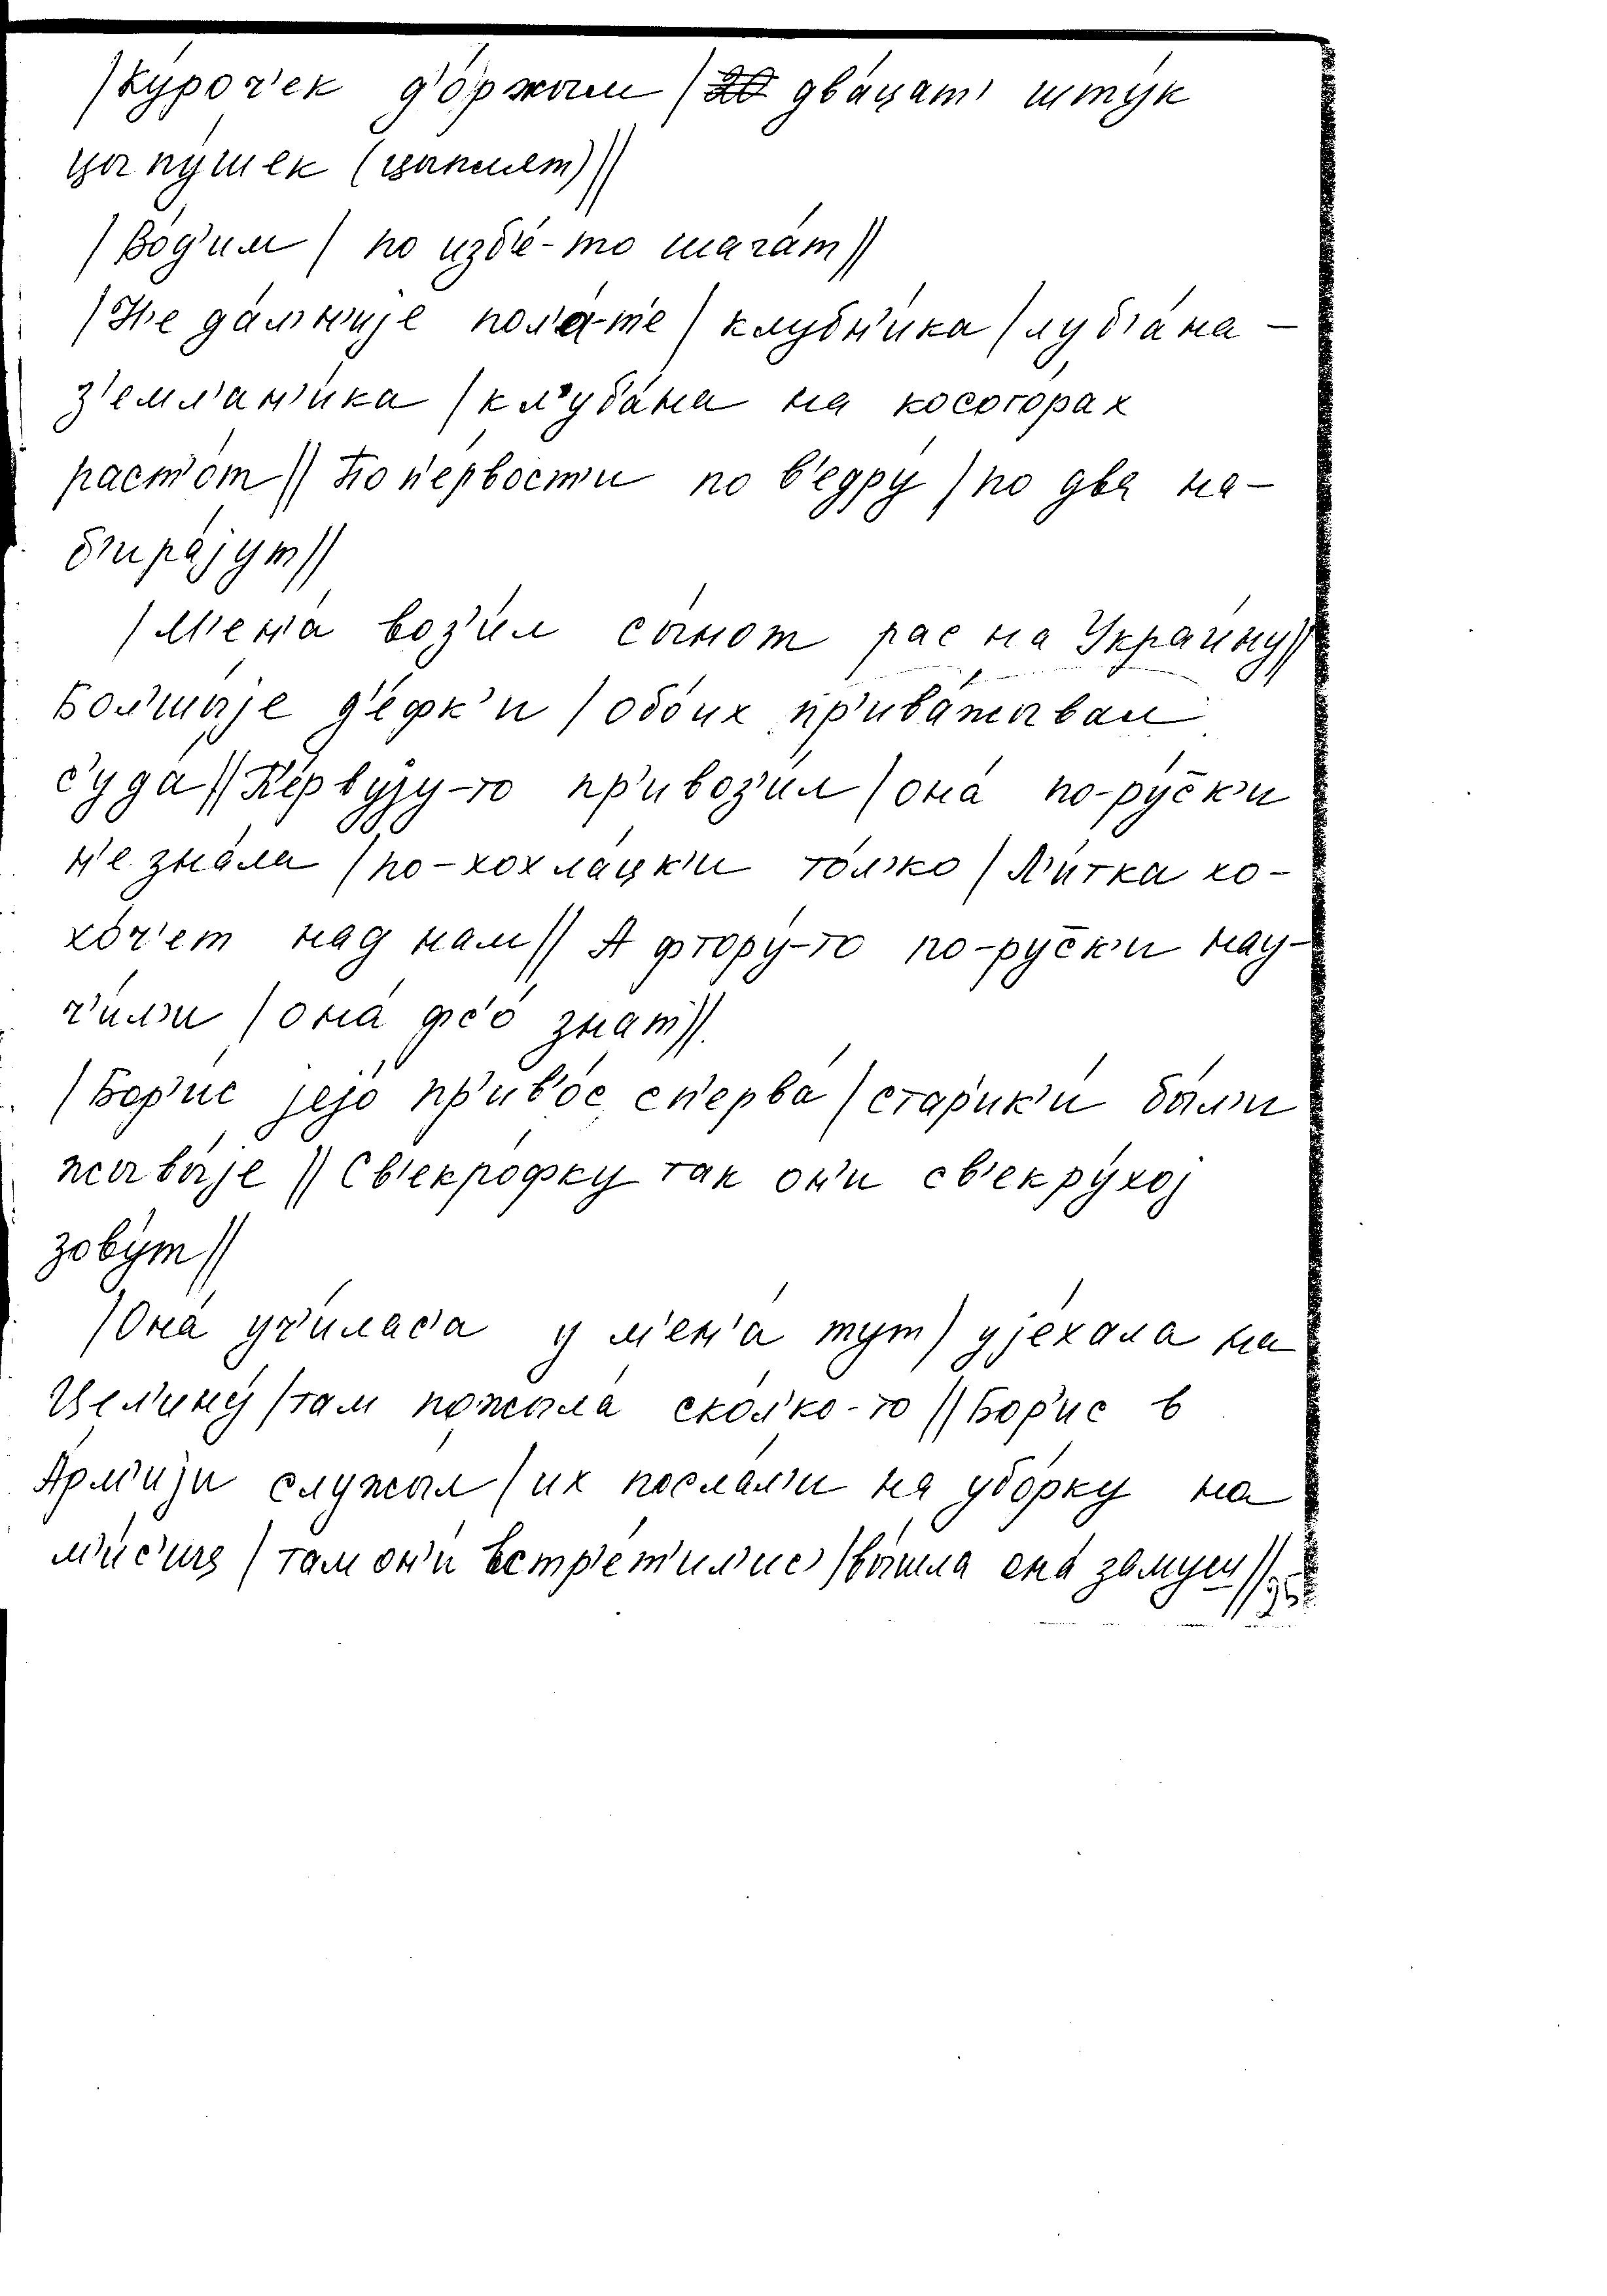 /ку́роч'ек д'о́ржым / два́цат' шту́к
цыпу́шек (цыплят) //
/во́д'им / по избе́-то шага́т //
/Н'е да́л'н'ије пол'а́-т'е / клубн'и́ка / луб'а́на –
з'емл'ан'и́ка / кл'уба́на на косого́рах
раст'о́т // Поп'е́рвост'и по в'едру́ / по два на-
б'ира́јут //
/М'ен'а́ воз'и́л сы́нот рас на Украи́ну //
Бол'шы́је д'е́фк'и / обо́их пр'ива́жывал
с'уда́ // П'е́рвују-то пр'ивоз'и́л / она́ по-ру́с̄к'и
н'е зна́ла / по-хохла́цк'и то́л'ко / Л'и́тка хо-
хо́ч'ет над нам // А фтору́-то по-ру́с̄к'и нау-
ч'и́л'и / она́ фс'о́ зна́т //
/Бор'и́с јејо́ пр'ив'о́с сп'ерва́ / стар'ик'и́ бы́л'и
жывы́је // Св'екро́фку так он'и́ св'екру́хој
зову́т //
/Она́ уч'и́лас'а у м'ен'а́ тут / ује́хала на
Цел'ину́ / там пожыла́ ско́л'ко-то // Бор'и́с в
А́рм'ији служы́л / их посла́л'и на убо́рку на
м'и́с'иц / там он'и́ встр'е́т'ил'ис' / вы́шла она́ за́муш //